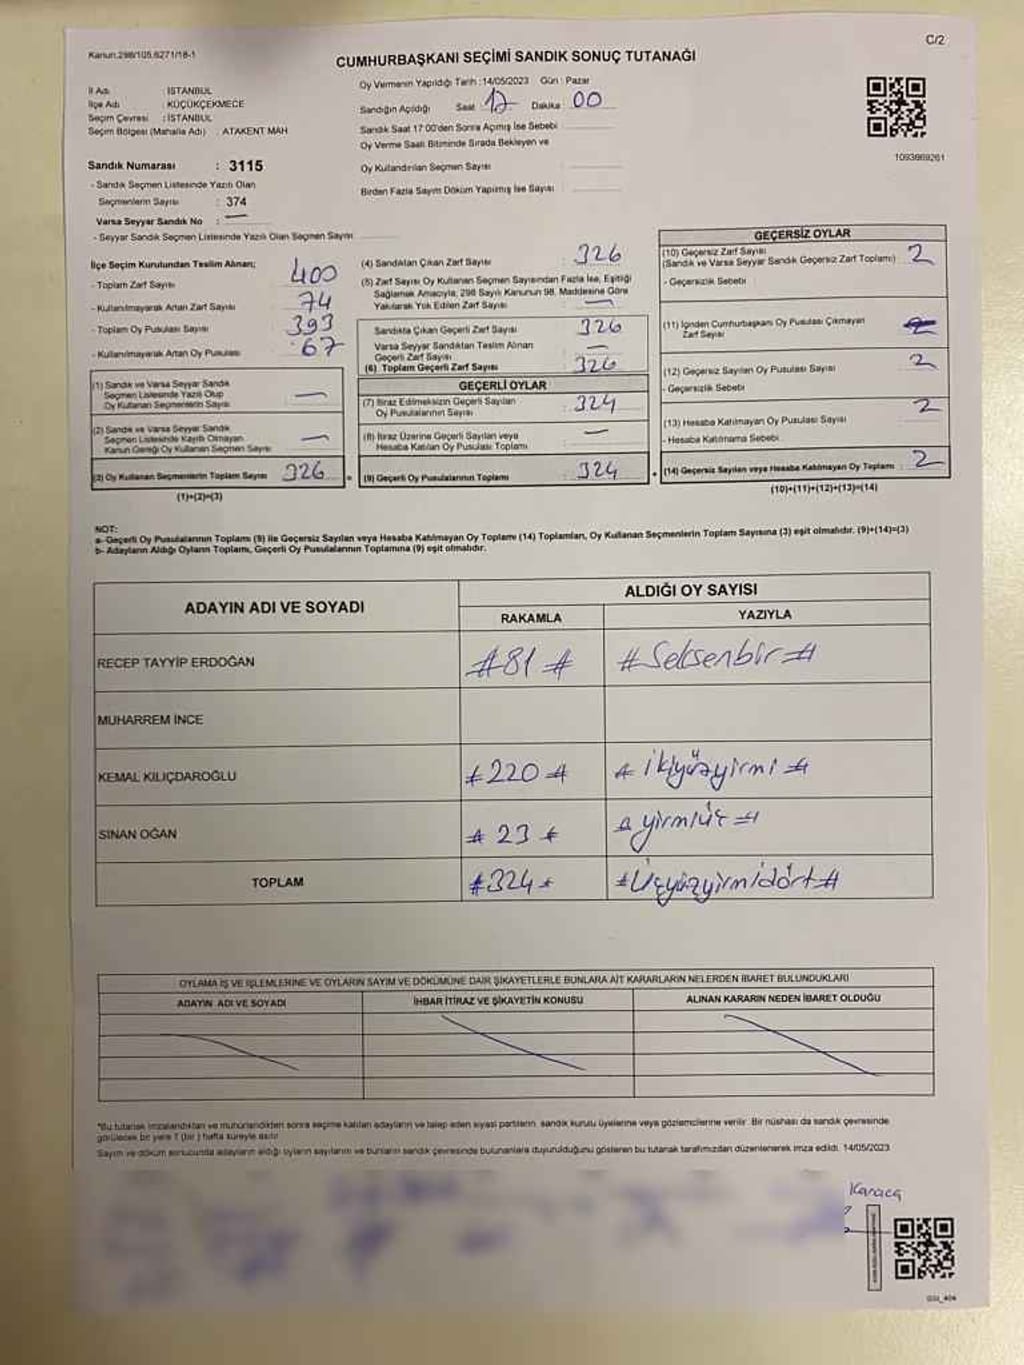 Kanun:298/105,6271/18-1
C/2
CUMHURBAŞKANI SEÇİMİ SANDIK SONUÇ TUTANAĞI
İl Adı : İSTANBUL
İlçe Adı : KÜÇÜKÇEKMECE
Seçim Çevresi : İSTANBUL
Seçim Bölgesi (Mahalle Adı) : ATAKENT MAH
Oy Vermenin Yapıldığı Tarih : 14/05/2023 Gün : Pazar
Sandığın Açıldığı Saat 17 Dakika 00
Sandık Saat 17:00'den Sonra Açılmış İse Sebebi
Oy Verme Saati Bitiminde Sırada Bekleyen ve
Oy Kullandırılan Seçmen Sayısı
Birden Fazla Sayım Döküm Yapılmış İse Sayısı
1093969261
Sandık Numarası : 3115
- Sandık Seçmen Listesinde Yazılı Olan
Seçmenlerin Sayısı : 374
Varsa Seyyar Sandık No : —
- Seyyar Sandık Seçmen Listesinde Yazılı Olan Seçmen Sayısı
İlçe Seçim Kurulundan Teslim Alınan;
- Toplam Zarf Sayısı 400
- Kullanılmayarak Artan Zarf Sayısı 74
- Toplam Oy Pusulası Sayısı 393
- Kullanılmayarak Artan Oy Pusulası 67
(1) Sandık ve Varsa Seyyar Sandık
Seçmen Listesinde Yazılı Olup
Oy Kullanan Seçmenlerin Sayısı —
(2) Sandık ve Varsa Seyyar Sandık
Seçmen Listesinde Kayıtlı Olmayan
Kanun Gereği Oy Kullanan Seçmen Sayısı —
(3) Oy Kullanan Seçmenlerin Toplam Sayısı 326
(1)+(2)=(3)
(4) Sandıktan Çıkan Zarf Sayısı 326
(5) Zarf Sayısı Oy Kullanan Seçmen Sayısından Fazla İse, Eşitliği
Sağlamak Amacıyla, 298 Sayılı Kanunun 98. Maddesine Göre
Yakılarak Yok Edilen Zarf Sayısı —
Sandıkta Çıkan Geçerli Zarf Sayısı 326
Varsa Seyyar Sandıktan Teslim Alınan
Geçerli Zarf Sayısı —
(6) Toplam Geçerli Zarf Sayısı 326
GEÇERLİ OYLAR
(7) İtiraz Edilmeksizin Geçerli Sayılan
Oy Pusulalarının Sayısı 324
(8) İtiraz Üzerine Geçerli Sayılan veya
Hesaba Katılan Oy Pusulası Toplamı —
(9) Geçerli Oy Pusulalarının Toplamı 324
GEÇERSİZ OYLAR
(10) Geçersiz Zarf Sayısı
(Sandık ve Varsa Seyyar Sandık Geçersiz Zarf Toplamı) 2
- Geçersizlik Sebebi
(11) İçinden Cumhurbaşkanı Oy Pusulası Çıkmayan
Zarf Sayısı
(12) Geçersiz Sayılan Oy Pusulası Sayısı 2
- Geçersizlik Sebebi
(13) Hesaba Katılmayan Oy Pusulası Sayısı 2
- Hesaba Katılmama Sebebi
(14) Geçersiz Sayılan veya Hesaba Katılmayan Oy Toplamı 2
(10)+(11)+(12)+(13)=(14)
NOT:
a- Geçerli Oy Pusulalarının Toplamı (9) ile Geçersiz Sayılan veya Hesaba Katılmayan Oy Toplamı (14) Toplamları, Oy Kullanan Seçmenlerin Toplam Sayısına (3) eşit olmalıdır. (9)+(14)=(3)
b- Adayların Aldığı Oyların Toplamı, Geçerli Oy Pusulalarının Toplamına (9) eşit olmalıdır.
ADAYIN ADI VE SOYADI
ALDIĞI OY SAYISI
RAKAMLA YAZIYLA
RECEP TAYYİP ERDOĞAN #81# #Seksenbir#
MUHARREM İNCE
KEMAL KILIÇDAROĞLU #220# #ikiyüzyirmi#
SİNAN OĞAN #23# #yirmiüç#
TOPLAM #324# #Üçyüzyirmidört#
OYLAMA İŞ VE İŞLEMLERİNE VE OYLARIN SAYIM VE DÖKÜMÜNE DAİR ŞİKAYETLERLE BUNLARA AİT KARARLARIN NELERDEN İBARET BULUNDUKLARI
ADAYIN ADI VE SOYADI İHBAR İTİRAZ VE ŞİKAYETİN KONUSU ALINAN KARARIN NEDEN İBARET OLDUĞU
*Bu tutanak imzalandıktan ve mühürlendikten sonra seçime katılan adayların ve talep eden siyasi partilerin, sandık kurulu üyelerine veya gözlemcilerine verilir. Bir nüshası da sandık çevresinde
görülecek bir yere 1 (bir) hafta süreyle asılır.
Sayım ve döküm sonucunda adayların aldığı oyların sayılarını ve bunların sandık çevresinde bulunanlara duyurulduğunu gösteren bu tutanak tarafımızdan düzenlenerek imza edildi. 14/05/2023
Karaca